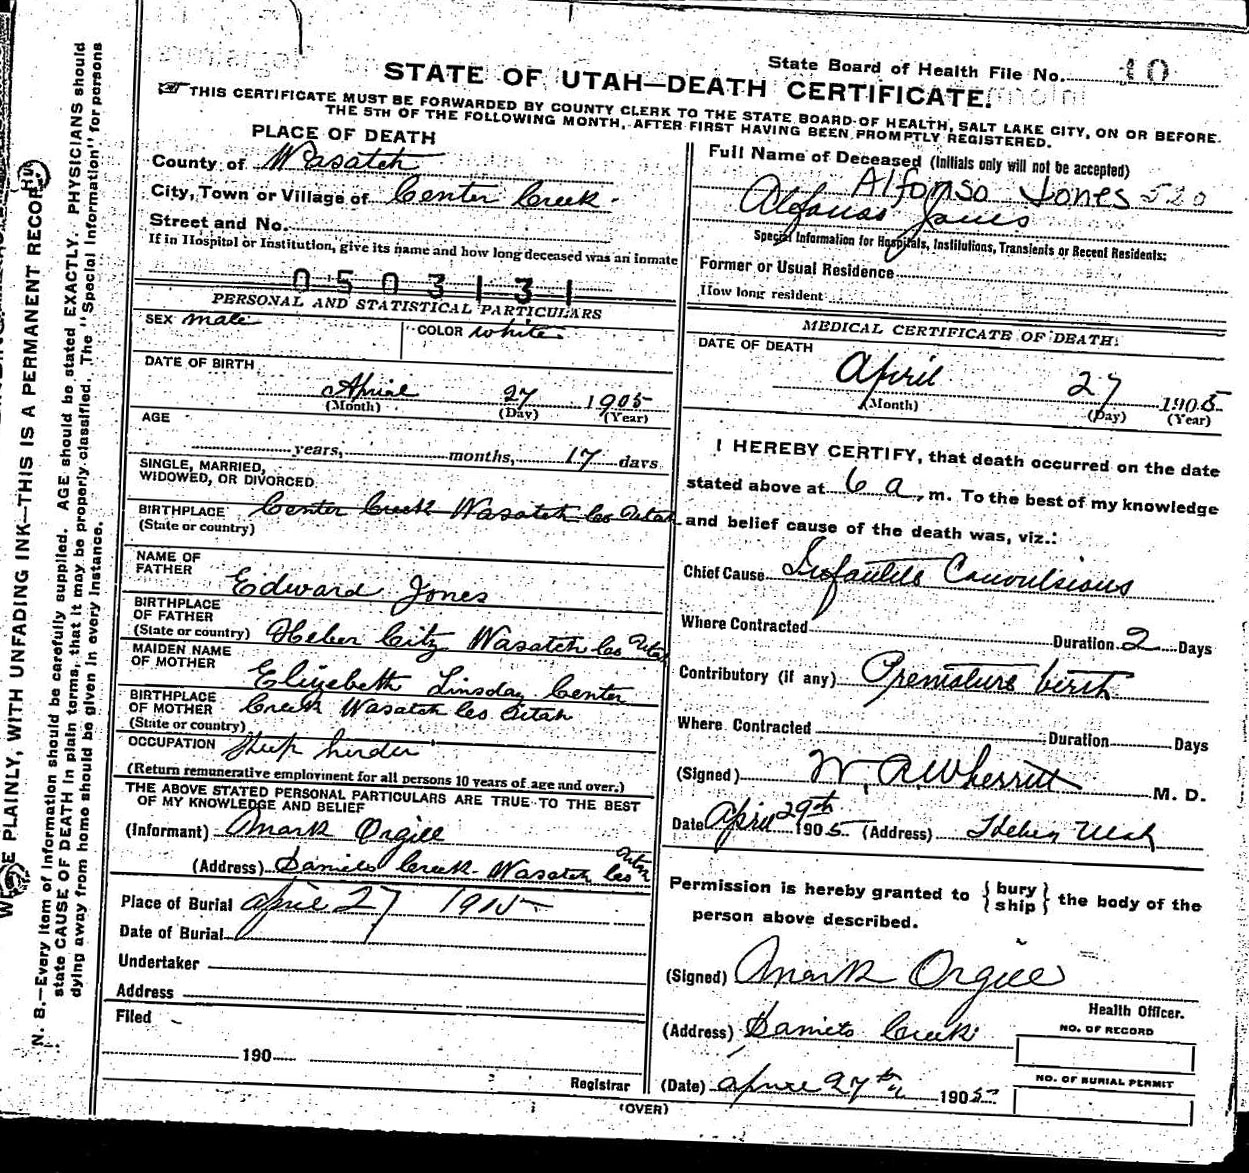 State Board of Health File No. 10
STATE OF UTAH—DEATH CERTIFICATE.
THIS CERTIFICATE MUST BE FORWARDED BY COUNTY CLERK TO THE STATE BOARD OF HEALTH, SALT LAKE CITY, ON OR BEFORE
THE 5TH OF THE FOLLOWING MONTH, AFTER FIRST HAVING BEEN PROMPTLY REGISTERED.
PLACE OF DEATH
County of Wasatch
City, Town or Village of Center Creek
Street and No.
If in Hospital or Institution, give its name and how long deceased was an inmate
0503131
PERSONAL AND STATISTICAL PARTICULARS
SEX male COLOR white
DATE OF BIRTH
Aprial 27 1905
(Month) (Day) (Year)
AGE
years, months, 17 days
SINGLE, MARRIED,
WIDOWED, OR DIVORCED
BIRTHPLACE Center Creek Wasatch Co Utah
(State or country)
NAME OF
FATHER
Edward Jones
BIRTHPLACE
OF FATHER
(State or country) Heber City Wasatch Co Utah
MAIDEN NAME
OF MOTHER
Elizebeth Linsday Center
BIRTHPLACE
OF MOTHER Creek Wasatch Co Utah
(State or country)
OCCUPATION Sheep hirder
(Return remunerative employment for all persons 10 years of age and over.)
THE ABOVE STATED PERSONAL PARTICULARS ARE TRUE TO THE BEST
OF MY KNOWLEDGE AND BELIEF
(Informant) Mark Orgill
(Address) Daniels Creek Wasatch Co Utah
Place of Burial April 27 1905
Date of Burial
Undertaker
Address
Filed
190
Registrar
Full Name of Deceased (Initials only will not be accepted)
Alfonso Jones 520
Alfonso Jones
Special Information for Hospitals, Institutions, Transients or Recent Residents:
Former or Usual Residence
How long resident
MEDICAL CERTIFICATE OF DEATH
DATE OF DEATH
April 27 1905
(Month) (Day) (Year)
I HEREBY CERTIFY, that death occurred on the date
stated above at 6 a, m. To the best of my knowledge
and belief cause of the death was, viz.:
Chief Cause Infantile Convulsions
Where Contracted Duration 2 Days
Contributory (if any) Premature birth
Where Contracted Duration Days
(Signed) W. R. Wherritt M. D.
Date April 29th 1905 (Address) Heber Utah
Permission is hereby granted to { bury ship } the body of the
person above described.
(Signed) Mark Orgill
Health Officer.
(Address) Daniels Creek
NO. OF RECORD
NO. OF BURIAL PERMIT
(Date) Aprile 27th 1905
(OVER)
PLAINLY, WITH UNFADING INK—THIS IS A PERMANENT RECORD
N. B.—Every item of information should be carefully supplied. AGE should be stated EXACTLY. PHYSICIANS should
state CAUSE OF DEATH in plain terms, that it may be properly classified. The "Special Information" for persons
dying away from home should be given in every instance.